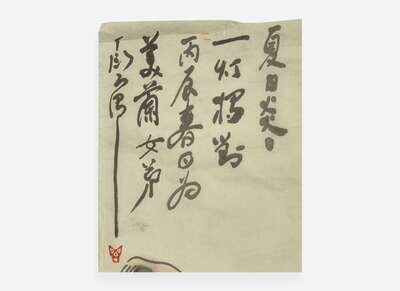 夏日炎
一灯獨對
丙辰春日为
美蘭女弟
丁衍庸